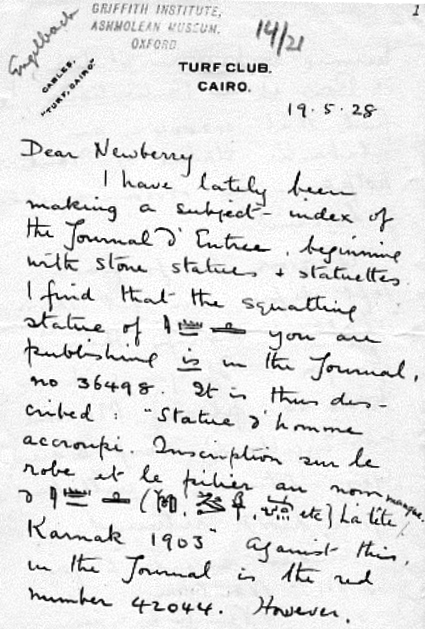 GRIFFITH INSTITUTE,
ASHMOLEAN MUSEUM.
OXFORD.
14/21
1
Engelbach
CABLES.
"TURF, CAIRO."
TURF CLUB.
CAIRO.
19.5.28
Dear Newberry
I have lately been
making a subject-index of
the Journal d'Entree, beginning
with stone statues & statuettes.
I find that the squatting
statue of 𓇋𓏠𓈖𓊵 you are
publishing is in the Journal,
no 36498. It is thus des-
cribed: "Statue d'homme
accroupi. Inscription sur le
robe et le pilier au nom
d 𓇋𓏠𓈖𓊵 ( etc) La tête manque.
Karnak 1903" Against this,
in the Journal is the red
number 42044. However,